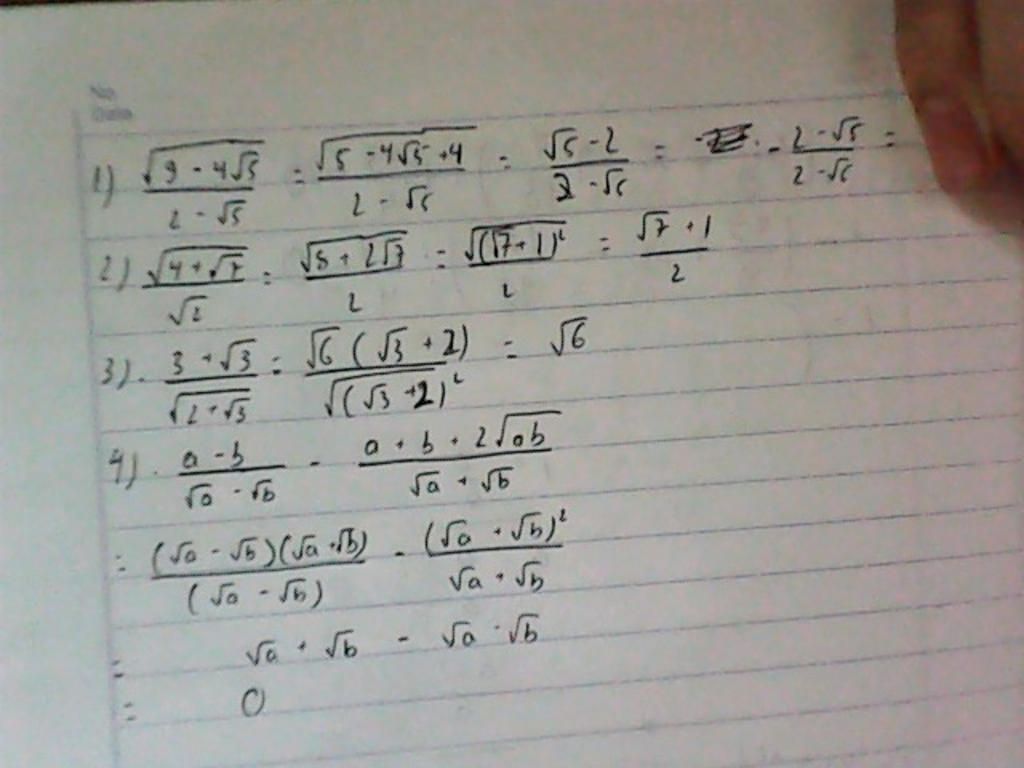 No
Date
1) √(9 - 4√5) / (2 - √5) = √(5 - 4√5 + 4) / (2 - √5) = (√5 - 2) / (2 - √5) = - (2 - √5) / (2 - √5) =
2) √(4 + √7) / √2 = √(8 + 2√7) / 2 = √((√7 + 1)²) / 2 = (√7 + 1) / 2
3). (3 + √3) / √(2 + √3) = √6 (√3 + 2) / √((√3 + 2)²) = √6
4). (a - b) / (√a - √b) - (a + b + 2√ab) / (√a + √b)
= (√a - √b)(√a + √b) / (√a - √b) - (√a + √b)² / (√a + √b)
= √a + √b - √a - √b
= 0